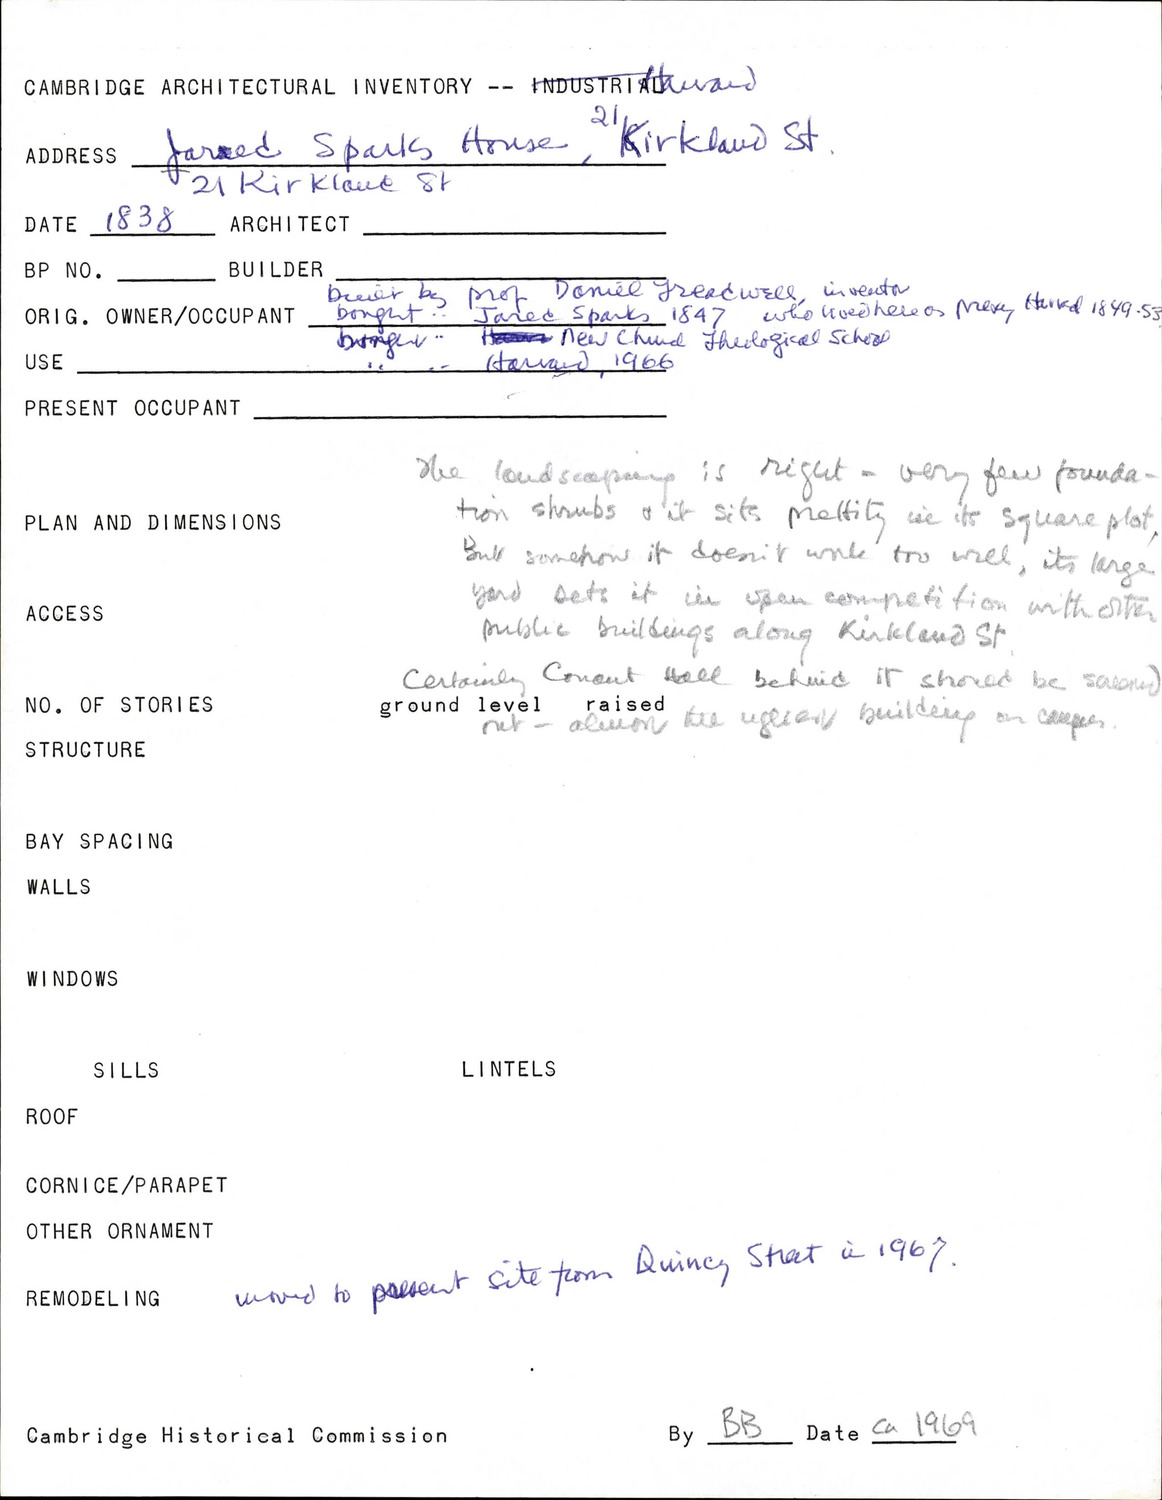 CAMBRIDGE ARCHITECTURAL INVENTORY -- INDUSTRIAL Harvard
ADDRESS Jared Sparks House, 21 Kirkland St.
21 Kirkland St
DATE 1838 ARCHITECT
BP NO. BUILDER
built by prof Daniel Treadwell, inventor
ORIG. OWNER/OCCUPANT bought " Jared Sparks 1847 who lived here as Prexy Harvd 1849-53
bought " New Church Theological School
USE " " Harvard, 1966
PRESENT OCCUPANT
The landscaping is right - very few founda-
tion shrubs & it sits prettily in its square plot,
PLAN AND DIMENSIONS
But somehow it doesn't work too well, its large
yard sets it in open competition with other
ACCESS
public buildings along Kirkland St.
Certainly Conant Hall behind it should be screened
NO. OF STORIES ground level raised
out - almost the ugliest building on campus.
STRUCTURE
BAY SPACING
WALLS
WINDOWS
SILLS LINTELS
ROOF
CORNICE/PARAPET
OTHER ORNAMENT
REMODELING moved to present site from Quincy Street in 1967.
Cambridge Historical Commission By BB Date ca 1969